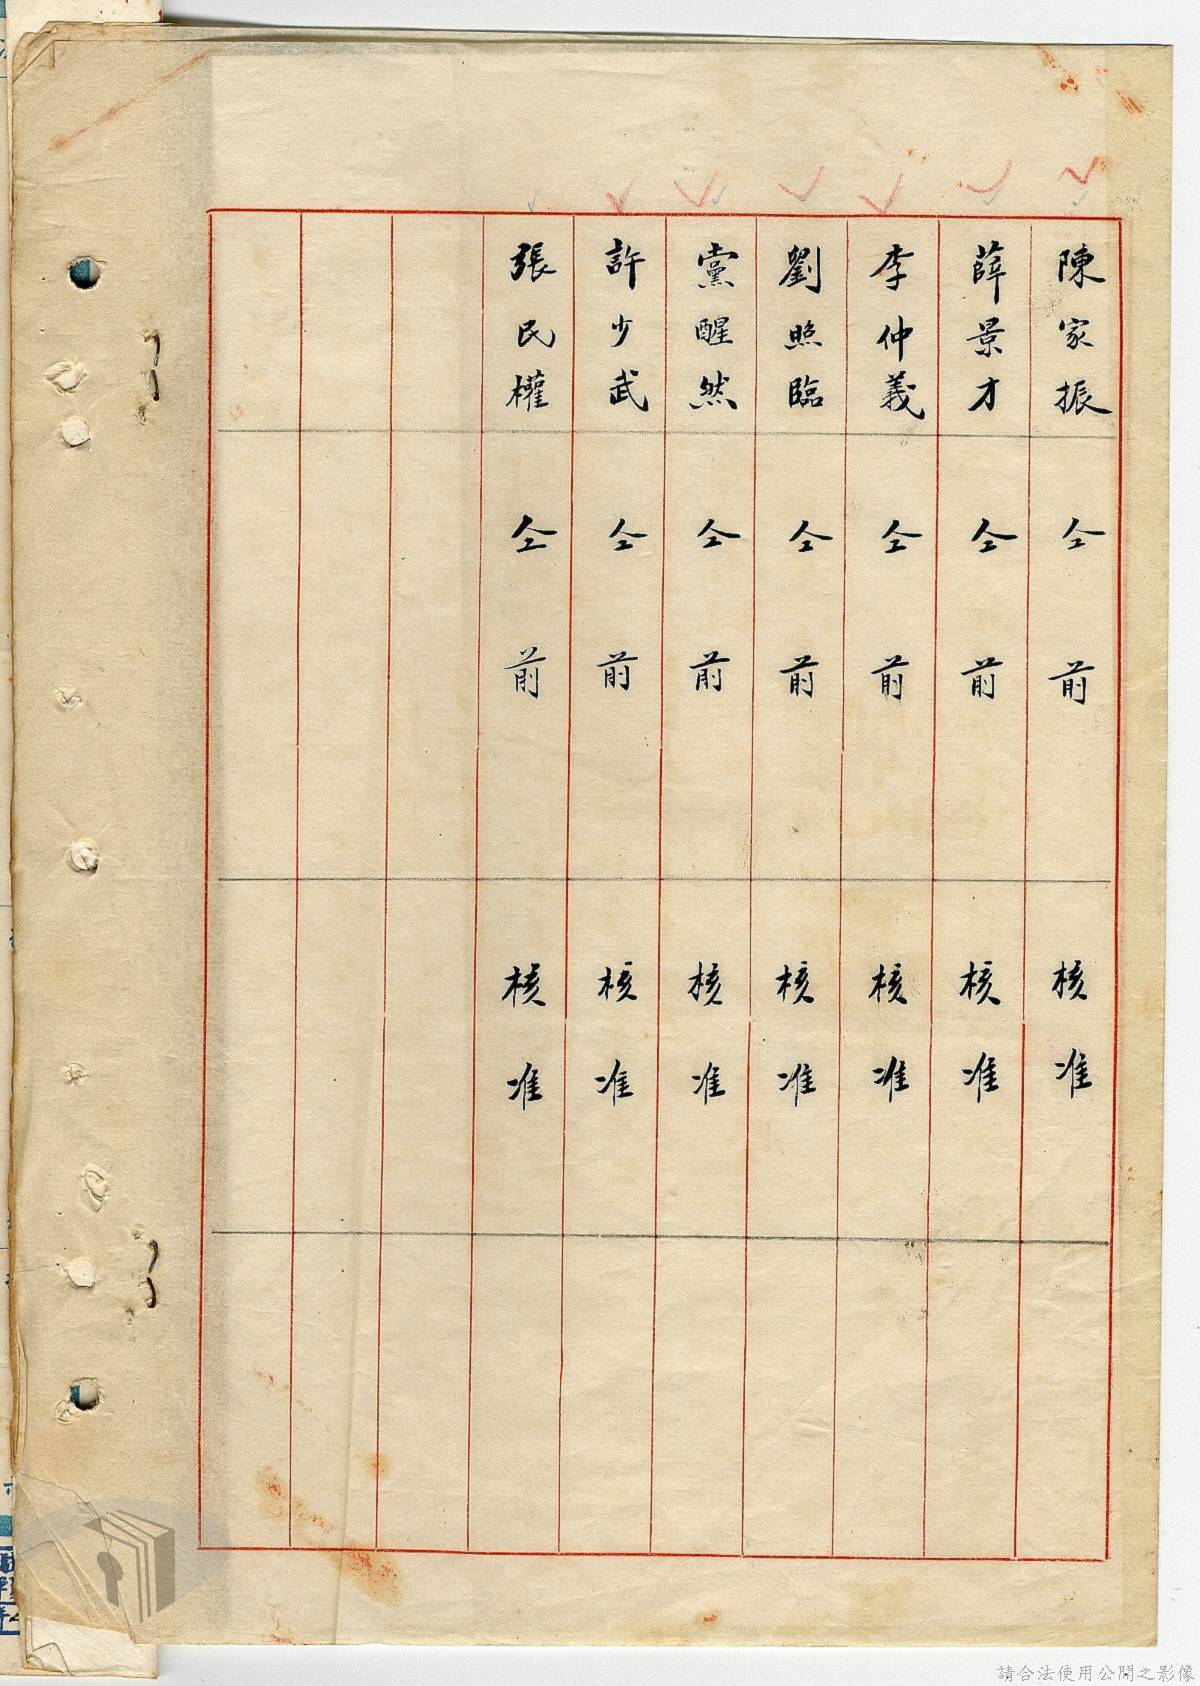 陳家振 仝前 核准
薛景才 仝前 核准
李仲義 仝前 核准
劉照臨 仝前 核准
黨醒然 仝前 核准
許少武 仝前 核准
張民權 仝前 核准
請合法使用公開之影像